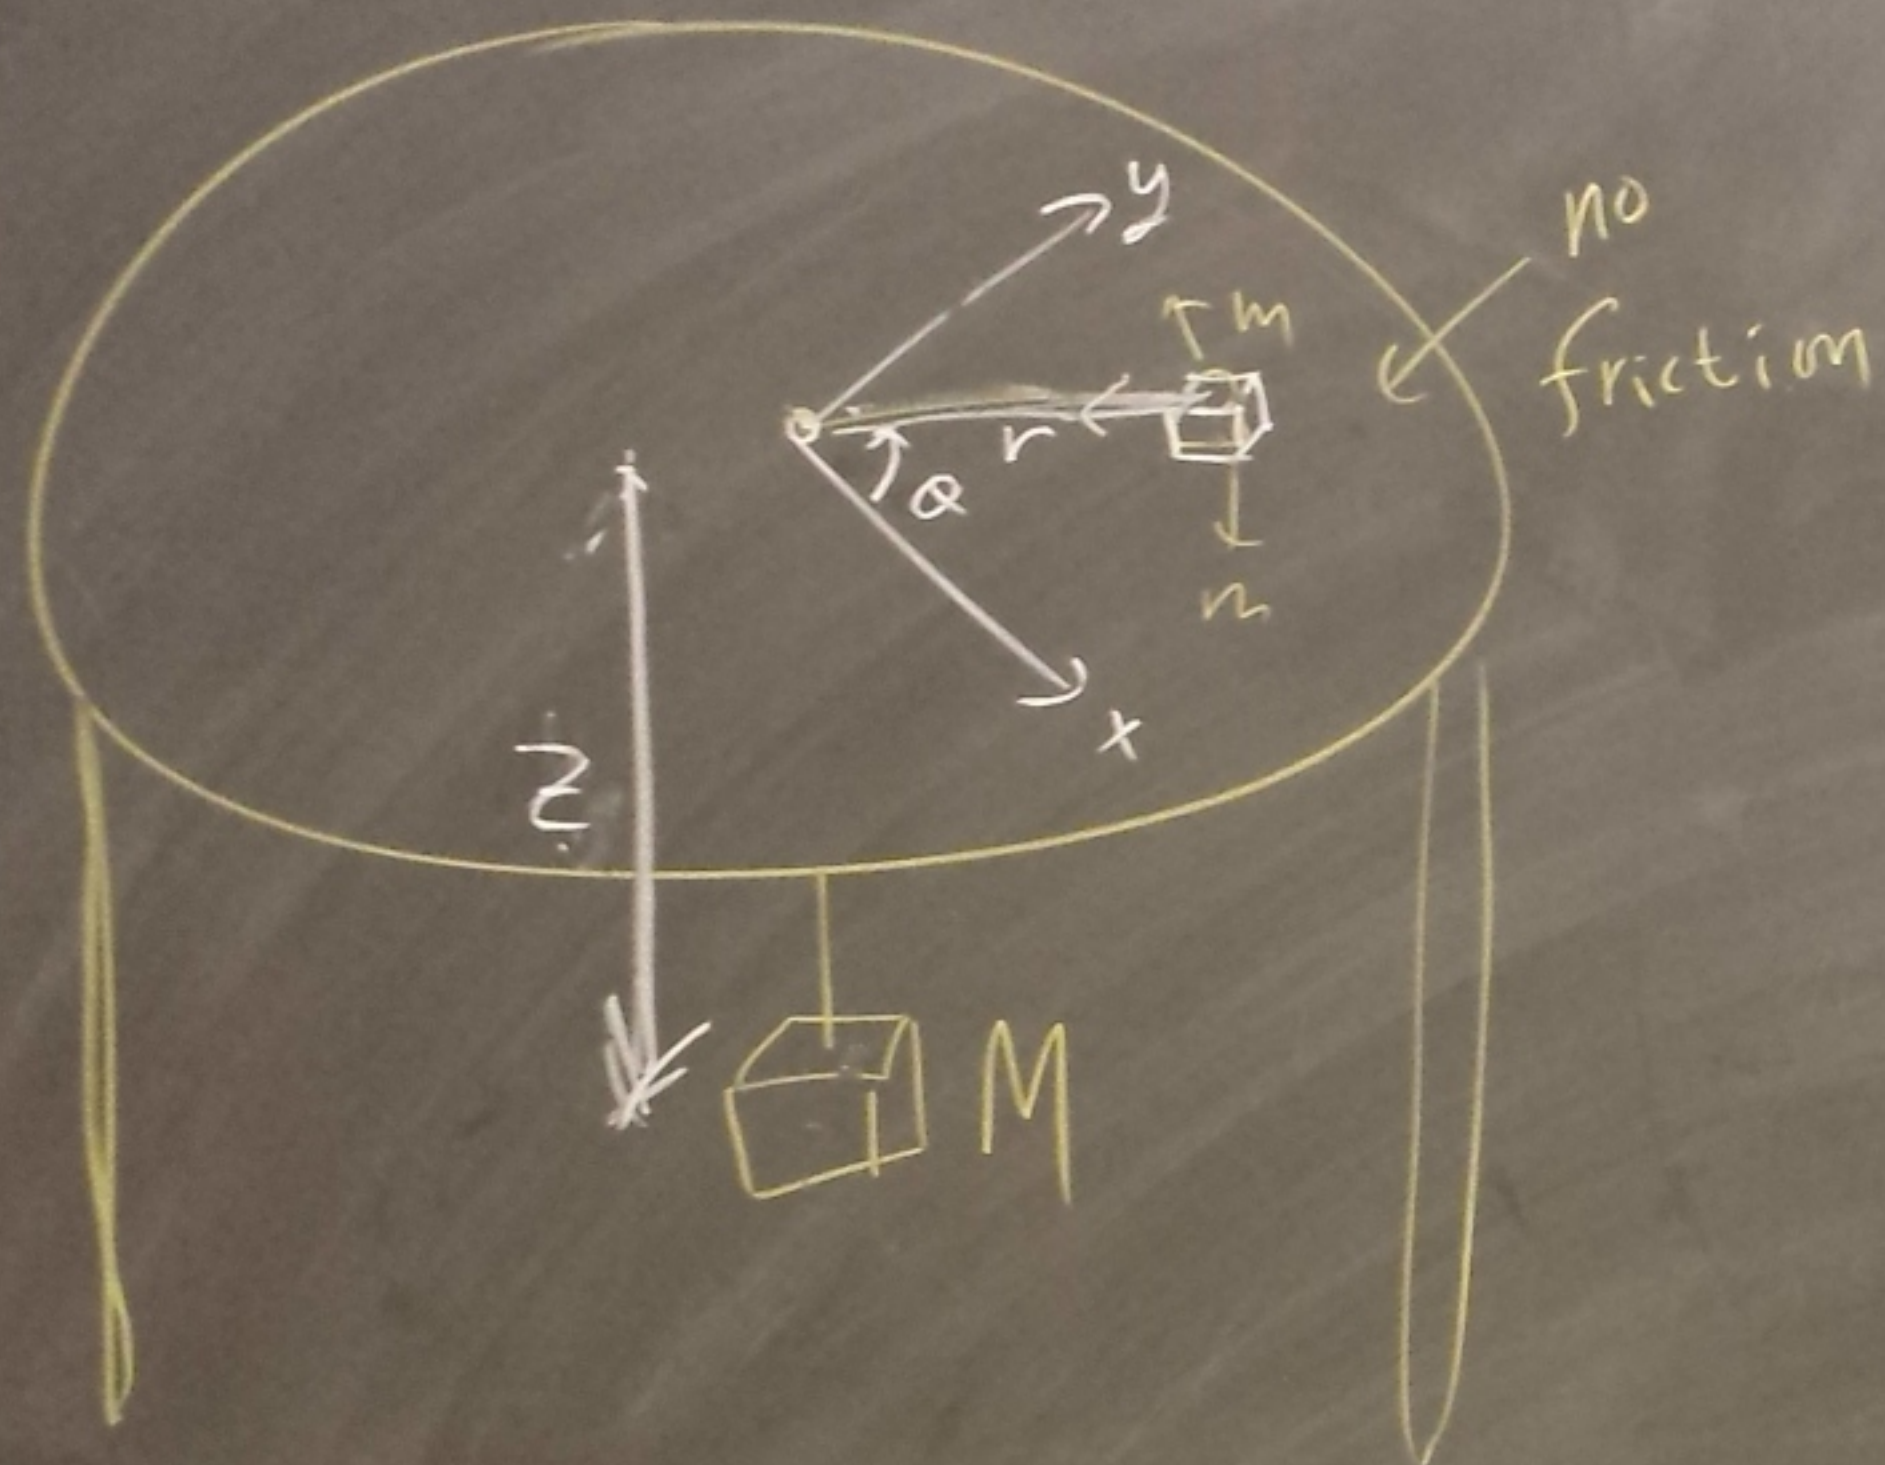 y
no
friction
m
r
θ
m
x
z
M